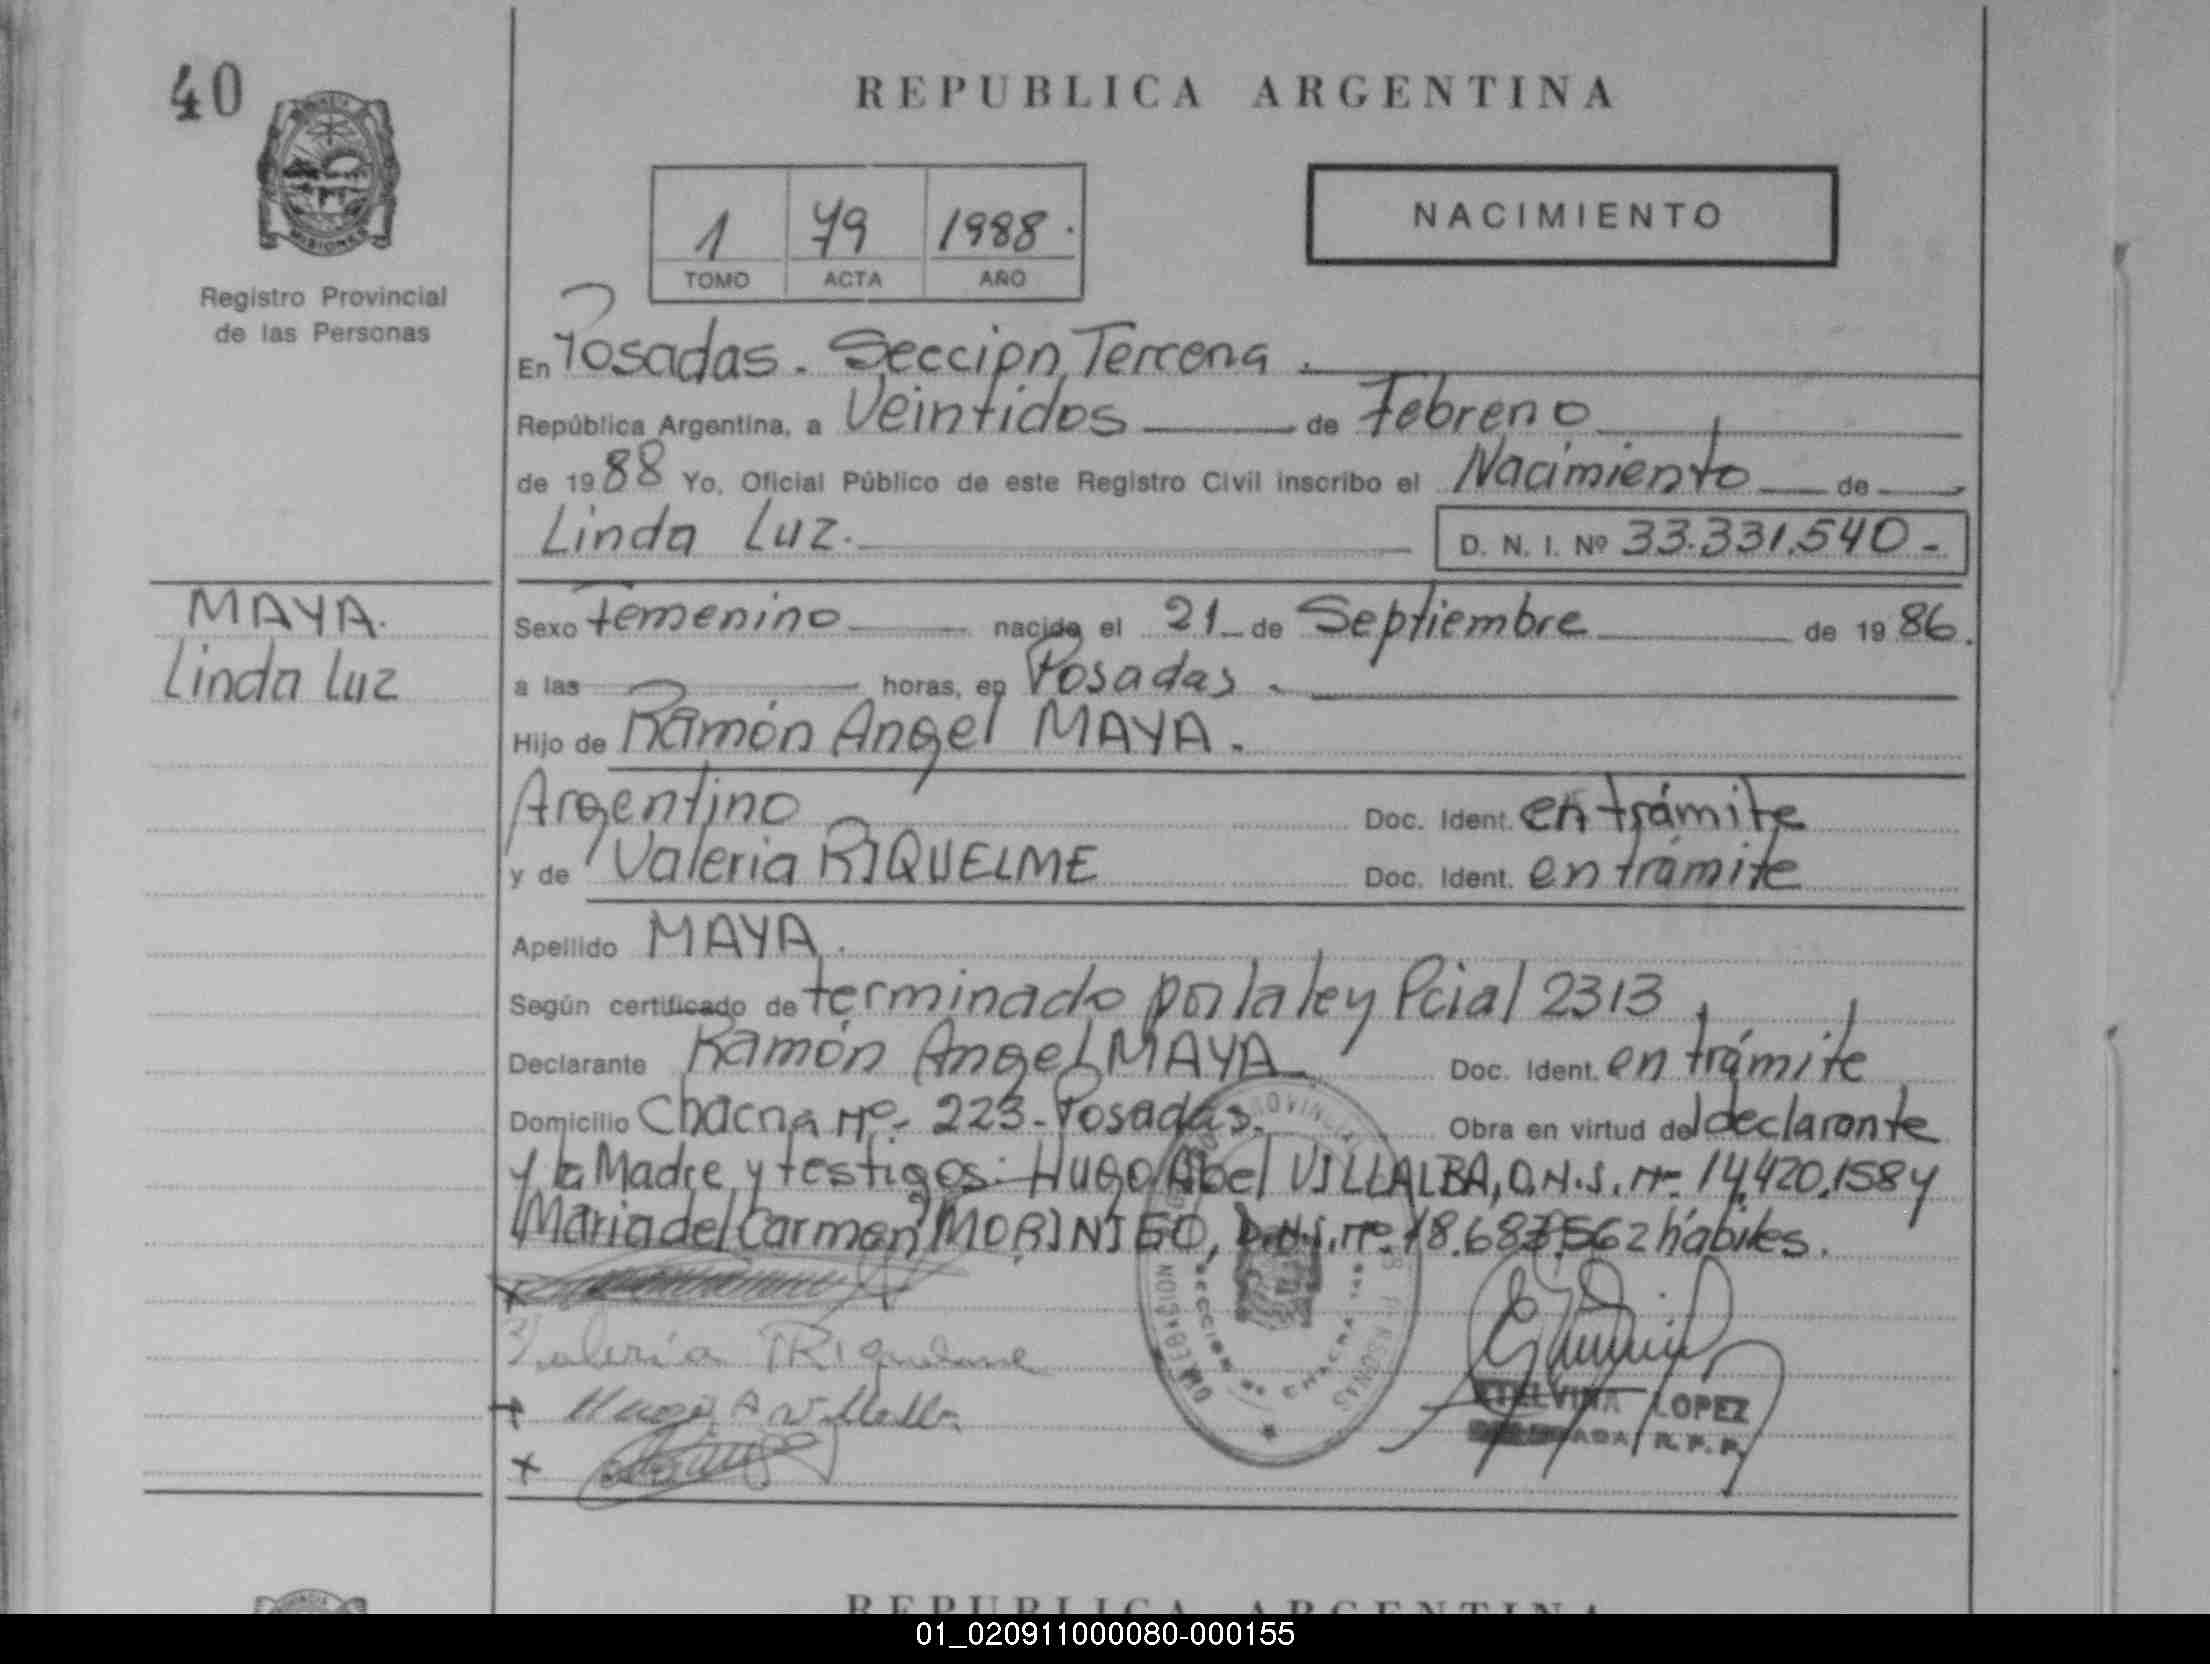 40
REPUBLICA ARGENTINA
MISIONES
Registro Provincial
de las Personas
1 79 1988.
TOMO ACTA AÑO
NACIMIENTO
En Posadas. Seccion Tercera.
República Argentina, a Veintidos de Febrero
de 1988 Yo, Oficial Público de este Registro Civil inscribo el Nacimiento de
Linda Luz. D. N. I. Nº 33.331.540-
MAYA.
Linda Luz
Sexo Femenino nacido el 21 de Septiembre de 1986.
a las horas, en Posadas.
Hijo de Ramón Angel MAYA.
Argentino Doc. Ident. en trámite
y de Valeria RIQUELME Doc. Ident. en trámite
Apellido MAYA.
Según certificado de terminado por la ley Pcial 2313
Declarante Ramón Angel MAYA Doc. Ident. en trámite
Domicilio Chacra Nº- 223-Posadas. Obra en virtud del declarante
y la Madre y testigos: Hugo Abel VILLALBA, D.N.I. Nº 14.420.158 y
Maria del Carmen MORINIGO, D.N.I. Nº 18. hábiles.
Valeria Riquelme
Hugo A Villalba
ETELVINA LOPEZ
R. P. P.
REPUBLICA ARGENTINA
01_020911000080-000155